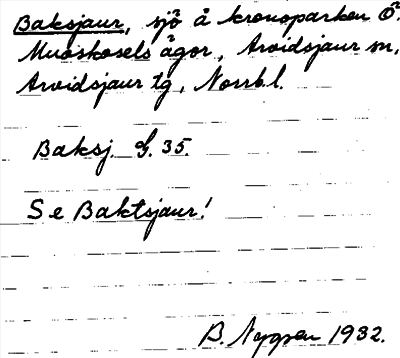 Baksjaur, sjö å kronoparken Ö.
Muoskosels ägor, Arvidsjaur sn,
Arvidsjaur tg, Norrb.l.
Baksj. G. 35.
Se Baktsjaur!
B. Nygren 1932.